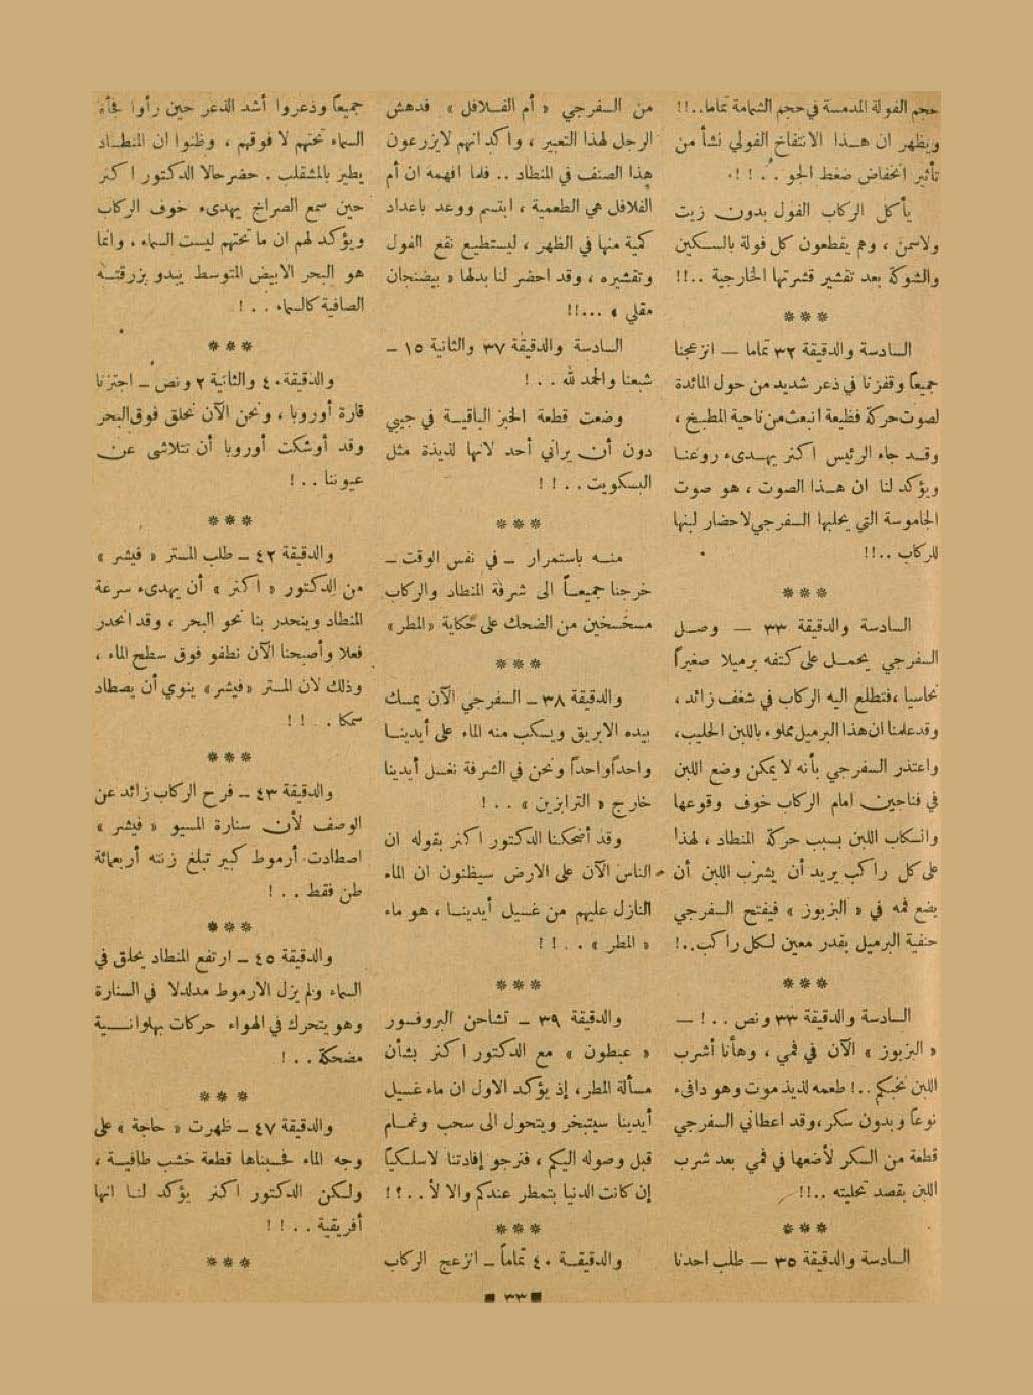 حجم الفولة المدمسة في حجم الشمامة تماما..!!
ويظهر ان هـذا الانتفاخ الفولي نشأ من
تأثير انخفاض ضغط الجو . . !!
يأكل الركاب الفول بدون زيت
ولاسمن ، وهم يقطعون كل فولة بالسكين
والشوكة بعد تقشير قشرتها الخارجية ..!!
***
السادسة والدقيقة ٣٢ تماما — انزعجنا
جميعاً وقفزنا في ذعر شديد من حول المائدة
لصوت حركة فظيعة انبعث من ناحية المطبخ ،
وقد جاء الرئيس اكنر يهدىء روعنا
ويؤكد لنا ان هـذا الصوت ، هو صوت
الجاموسة التي يحلبها السفرجي لاحضار لبنها
للركاب ..!!
***
السادسة والدقيقة ٣٣ — وصـل
السفرجي يحمـل على كتفه برميلا صغيراً
نحاسيا ، فتطلع اليه الركاب في شغف زائد ،
وقد علمنا ان هذا البرميل مملوء باللبن الحليب،
واعتذر السفرجي بأنه لا يمكن وضع اللبن
في فناجين امام الركاب خوف وقوعها
وانسكاب اللبن بسبب حركة المنطاد ، لهذا
على كل راكب يريد أن يشرب اللبن أن
يضع فمه في « البزبوز » فيفتح السفرجي
حنفية البرميل بقدر معين لكل راكب..!
***
السادسة والدقيقة ٣٣ ونص . . ! —
« البزبوز » الآن في فمي ، وهأنا أشرب
اللبن نخبكم ..! طعمه لذيذ موت وهو دافىء
نوعاً وبدون سكر، وقد اعطاني السفرجي
قطعة من السكر لأضعها في فمي بعد شرب
اللبن بقصد تحليته ..!!
***
السادسة والدقيقة ٣٥ — طلب احدنا
من السفرجي « أم الفـلافل » فدهش
الرجل لهذا التعبير ، واكد انهم لايزرعون
هذا الصنف في المنطاد .. فلما افهمه ان أم
الفلافل هي الطعمية ، ابتسم ووعد باعداد
كمية منها في الظهر ، ليستطيع نقع الفول
وتقشيره ، وقد احضر لنا بدلها « بيضنجان
مقلي » ...!!
السادسة والدقيقة ٣٧ والثانية ١٥ —
شبعنا والحمد لله . . !
وضعت قطعة الخبز الباقيـة في جيبي
دون أن يراني أحد لانها لذيذة مثل
البسكويت . . !!
***
منـه باستمرار — في نفس الوقت —
خرجنا جميعـاً الى شرفة المنطاد والركاب
مسخسخين من الضحك على حكاية «المطر»
***
والدقيقة ٣٨ — السفرجي الآن يمسك
بيده الابريق ويسكب منه الماء على أيدينـا
واحداً واحداً ونحن في الشرفة نغسل أيدينا
خارج « الترابزين » . . !
وقد أضحكنا الدكتور اكنر بقوله ان
الناس الآن على الارض سيظنون ان الماء
النازل عليهم من غسيل أيدينـا ، هو ماء
« المطر » . . !!
***
والدقيقة ٣٩ — تشاحن البروفسور
« عبطون » مع الدكتور اكنر بشأن
مسألة المطر، إذ يؤكد الاول ان ماء غسيل
أيدينا سيتبخر ويتحول الى سحب وغمـام
قبل وصوله اليكم ، فنرجو إفادتنا لاسلكياً
إن كانت الدنيا بتمطر عندكم والا لأ . . ؟!
***
والدقيقـة ٤٠ تماماً — انزعج الركاب
جميعاً وذعروا أشد الذعر حين رأوا فجأة
السماء تحتهم لا فوقهم ، وظنوا ان المنطـاد
يطير بالمشقلب . حضر حالا الدكتور اكنر
حين سمع الصراخ يهدىء خوف الركاب
ويؤكد لهم ان ما تحتهم ليست السماء . وانما
هو البحر الابيض المتوسط يبدو بزرقتـه
الصافية كالسماء . . !
***
والدقيقة ٤٠ والثانية ٢ ونص — اجتزنا
قارة أوروبا ، ونحن الآن نحلق فوق البحر
وقد أوشكت أوروبا أن تتلاشى عن
عيوننا . . !
***
والدقيقة ٤٢ — طلب المستر « فيشر »
من الدكتور « اكنر » أن يهدىء سرعة
المنطاد وينحدر بنا نحو البحر ، وقد انحدر
فعلا وأصبحنا الآن نطفو فوق سطح الماء ،
وذلك لان المستر «فيشر» ينوي أن يصطاد
سمكا . . !!
***
والدقيقة ٤٣ — فرح الركاب زائد عن
الوصف لأن سنارة المسيو « فيشر »
اصطادت أرموط كبير تبلغ زنته أربعمائة
طن فقط . . !
***
والدقيقة ٤٥ — ارتفع المنطاد يحلق في
السماء ولم يزل الارموط مدلدلا في السنارة
وهو يتحرك في الهواء حركات بهلوانـية
مضحكة . . !
***
والدقيقة ٤٧ — ظهرت « حاجة » على
وجه الماء فحسبناها قطعة خشب طافيـة ،
ولكن الدكتور اكنر يؤكد لنـا انها
أفريقية . . !!
***
٣٣